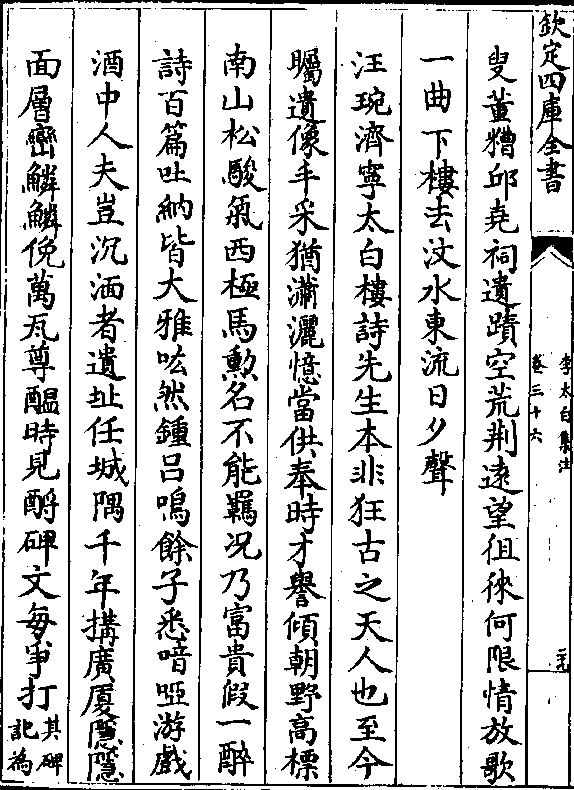 欽定四庫全書
李太白集注
卷三十六
叟董糟邱堯祠遺蹟空荒荆遠望徂徠何限情放歌
一曲下樓去汶水東流日夕聲
汪琬濟寧太白樓詩先生本非狂古之天人也至今
矚遺像丰采猶瀟灑憶當供奉時才譽傾朝野高標
南山松駿氣西極馬勲名不能羈况乃富貴假一醉
詩百篇吐納皆大雅吰然鍾吕鳴餘子悉喑啞游戲
酒中人夫豈沉湎者遺址任城隅千年搆廣厦隱隱
面層巒鱗鱗俛萬瓦尊醖時見酹碑文每爭打其碑記為